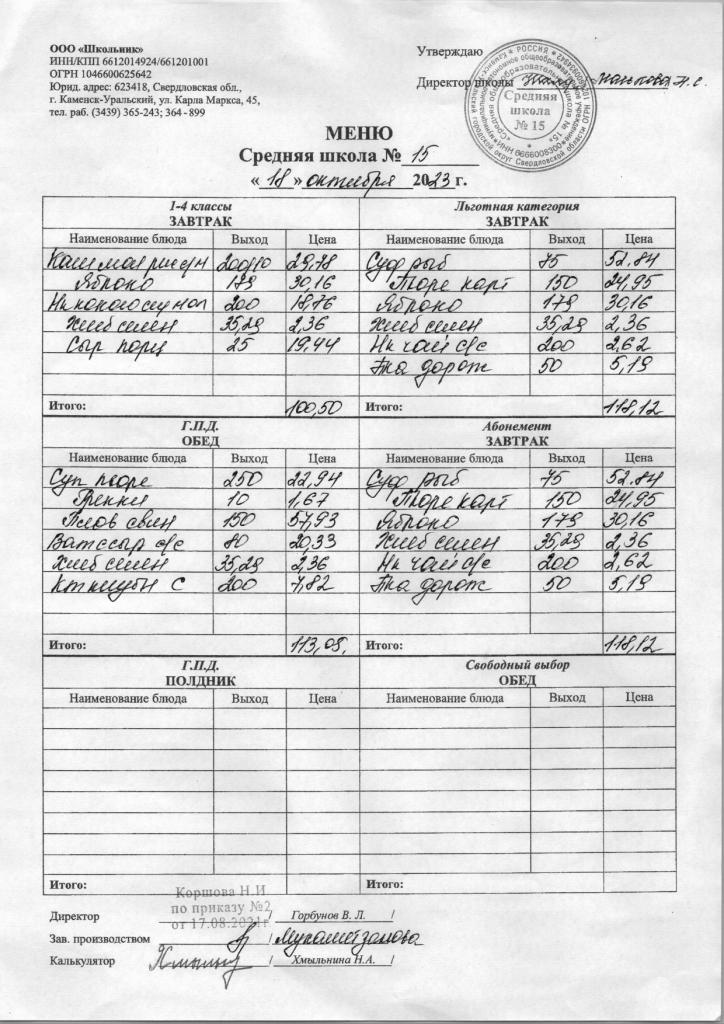 ООО «Школьник»
ИНН/КПП 6612014924/661201001
ОГРН 1046600625642
Юрид. адрес: 623418, Свердловская обл.,
г. Каменск-Уральский, ул. Карла Маркса, 45,
тел. раб. (3439) 365-243; 364 - 899
Утверждаю
Директор школы
РОССИЯ
Средняя
школа
№ 15
МЕНЮ
Средняя школа № 15
« 18 » октября 2023 г.
1-4 классы
ЗАВТРАК
Наименование блюда Выход Цена
29,78
Яблоко 179 30,16
200 18,76
Хлеб семен 35,29 2,36
Сыр порц 25 19,44
Итого: 100,50
Льготная категория
ЗАВТРАК
Наименование блюда Выход Цена
Суф рыб 75 52,84
Пюре карт 150 24,95
Яблоко 179 30,16
Хлеб семен 35,29 2,36
Нк чай с/с 200 2,62
дорож 50 5,19
Итого: 118,12
Г.П.Д.
ОБЕД
Наименование блюда Выход Цена
Суп пюре 250 22,94
Гренки 10 1,67
Плов свин 150 57,93
80 20,33
Хлеб семен 35,29 2,36
200 7,82
Итого: 113,05
Абонемент
ЗАВТРАК
Наименование блюда Выход Цена
Суф рыб 75 52,84
Пюре карт 150 24,95
Яблоко 179 30,16
Хлеб семен 35,29 2,36
Нк чай с/с 200 2,62
дорож 50 5,19
Итого: 118,12
Г.П.Д.
ПОЛДНИК
Наименование блюда Выход Цена
Итого:
Свободный выбор
ОБЕД
Наименование блюда Выход Цена
Итого:
Коршова Н.И
по приказу №2
от 17.08.2021г
Директор / Горбунов В. Л. /
Зав. производством / Мухаметзянова
Калькулятор / Хмыльнина Н.А. /